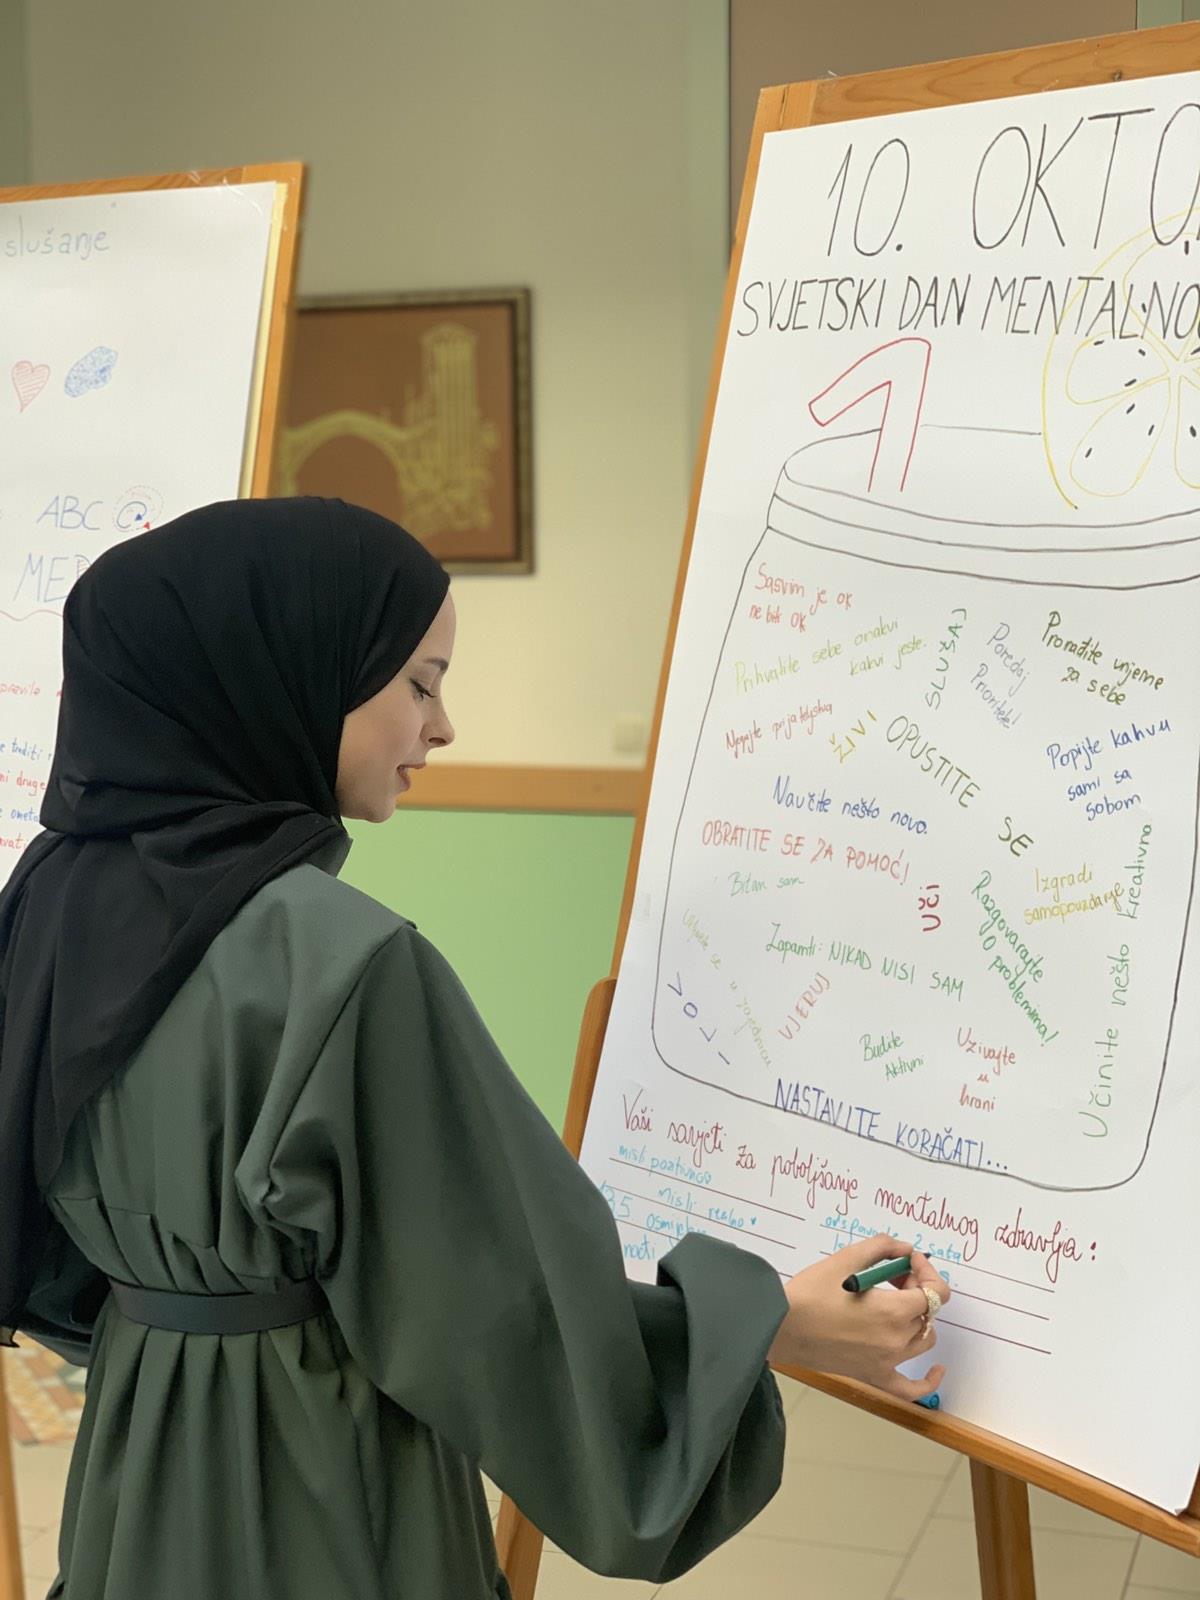 slušanje
ABC @
MED
pravilo
10. OKTO
SVJETSKI DAN MENTALNO
Sasvim je ok
ne biti ok
Prihvatite sebe onakvi
kakvi jeste.
SLUŠAJ
Poredaj
Prioritete!
Pronađite vrijeme
za sebe
Njegujte prijateljstva
ŽIVI
OPUSTITE
SE
Popijte kahvu
sami sa
sobom
Naučite nešto novo.
OBRATITE SE ZA POMOĆ!
Bitan sam
UČI
Izgradi
samopouzdanje
Razgovarajte
O problemima!
Učinite nešto kreativno
Zapamti: NIKAD NISI SAM
Uključite se
u zajednicu
VOLI
VJERUJ
Budite
Aktivni
Uživajte
u
hrani
NASTAVITE KORAČATI...
Vaši savjeti za poboljšanje mentalnog zdravlja:
misli pozitivno
misli realno
odspavajte 2 sata